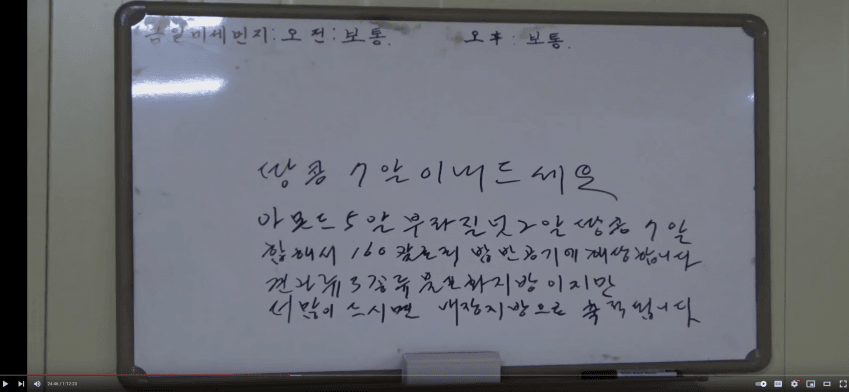 금일미세먼지: 오전: 보통. 오후: 보통.
땅콩 7알이내드세요
아몬드 5알 부라질넛 2알 땅콩 7알
합해서 160 칼로리 밥반공기에 해당합니다
견과류 3종류 불포화지방이지만
많이 드시면 내장지방으로 축적됩니다
24:46 / 1:12:23